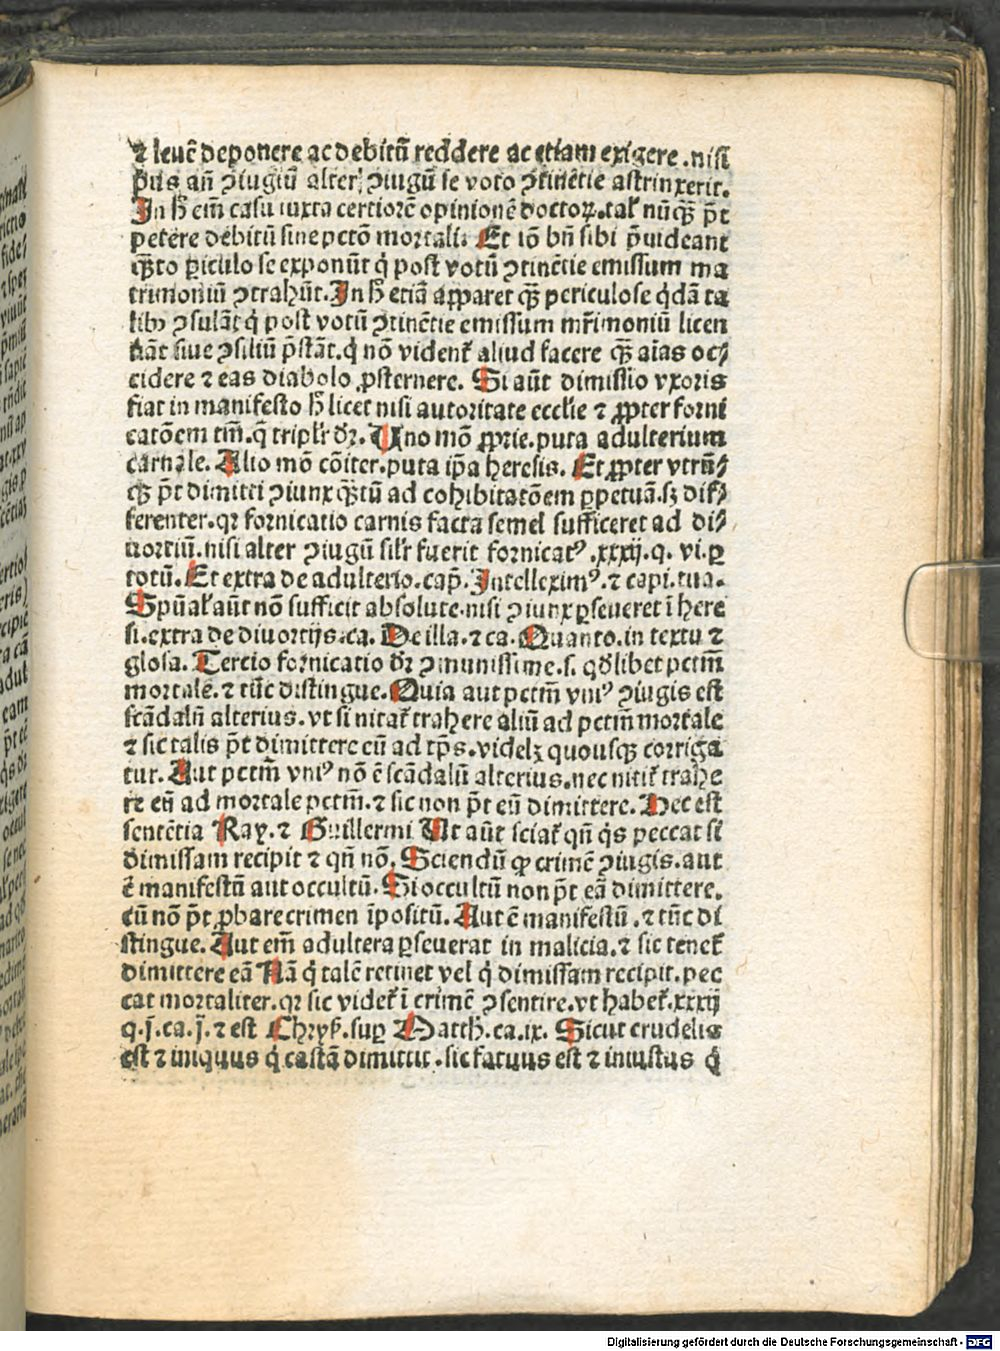 ⁊ leuē deponere ac debitū reddere ac etiam exigere .nisi
p̄us añ ꝯiugiū alter ꝯiugū se voto ꝯtinētie astrinxerit.
In h̄ em̄ casu iuxta certiorē opinionē doctoꝝ.tal' nūqꝫ p̄t
petere debitū sine pctō mortali. Et iō bñ sibi p̄uideant
qꝫto ꝑiculo se exponūt q̇ post votū ꝯtinētie emissum ma
trimoniū ꝯtrahūt.In h̄ etiā apparet qꝫ periculose q̇dā ta
libꝫ ꝯsulāt q̇ post votū ꝯtinētie emissum mr̄imoniū licen
tiāt siue ꝯsiliū p̄stāt.q̇ nō vident̄ aliud facere qꝫ aīas oc⸗
cidere ⁊ eas diabolo ꝓsternere. Si aūt dimissio vxoris
fiat in manifesto h̄ licet nisi autoritate eccl'ie ⁊ ꝓpter forni
catōem tm̄.q̄ tripl'r dr̄. Uno mō ꝓprie.puta adulterium
carnale. Alio mō cōiter.puta ip̄a heresis. Et ꝓpter vtrū⸗
qꝫ p̄t dimitti ꝯiunx qꝫtū ad cohibitatōem ꝑpetuā.sꝫ dif⸗
ferenter.qꝛ fornicatio carnis facta semel sufficeret ad di⸗
uortiū.nisi alter ꝯiugū sil'r fuerit fornicatꝰ.xxxij.q. vi.ꝑ
totū. Et extra de adulterio.cap̄. Intelleximꝰ.⁊ capi.tua.
Sp̄ual' aūt nō sufficit absolute.nisi ꝯiunx ꝑseueret ī here
si.extra de diuortijs.ca. De illa.⁊ ca. Quanto.in textu ⁊
glosa. Tercio fornicatio dr̄ ꝯmunissime.s. qd̄libet pctm̄
mortale.⁊ tūc distingue. Quia aut pctm̄ vniꝰ ꝯiugis est
scādalū alterius.vt si nitat̄ trahere aliū ad pctm̄ mortale
⁊ sic talis p̄t dimittere eū ad tp̄s.videlꝫ quousqꝫ corriga
tur. Aut pctm̄ vniꝰ nō ē scādalū alterius.nec nitit̄ trahe
re eū ad mortale pctm̄.⁊ sic non p̄t eū dimittere. Hec est
sentētia Ray.⁊ Guillermi Ut aūt sciat̄ qñ q̇s peccat si
dimissam recipit ⁊ qñ nō. Sciendū ꝙ crimē ꝯiugis.aut
ē manifestū aut occultū. Si occultū non p̄t eā dimittere.
cū nō p̄t ꝓbare crimen īpositū. Aut ē manifestū.⁊ tūc di
stingue. Aut em̄ adultera ꝑseuerat in malicia.⁊ sic tenet̄
dimittere eā Nā q̇ talē retinet vel q̇ dimissam recipit.pec
cat mortaliter.qꝛ sic videt̄ ī crimē ꝯsentire.vt habet̄.xxxij
q.j.ca.j.⁊ est Chrys̄.suꝑ Matth.ca.ix. Sicut crudelis
est ⁊ iniquus q̇ castā dimittit.sic fatuus est ⁊ iniustus q̇
Digitalisierung gefördert durch die Deutsche Forschungsgemeinschaft - DFG